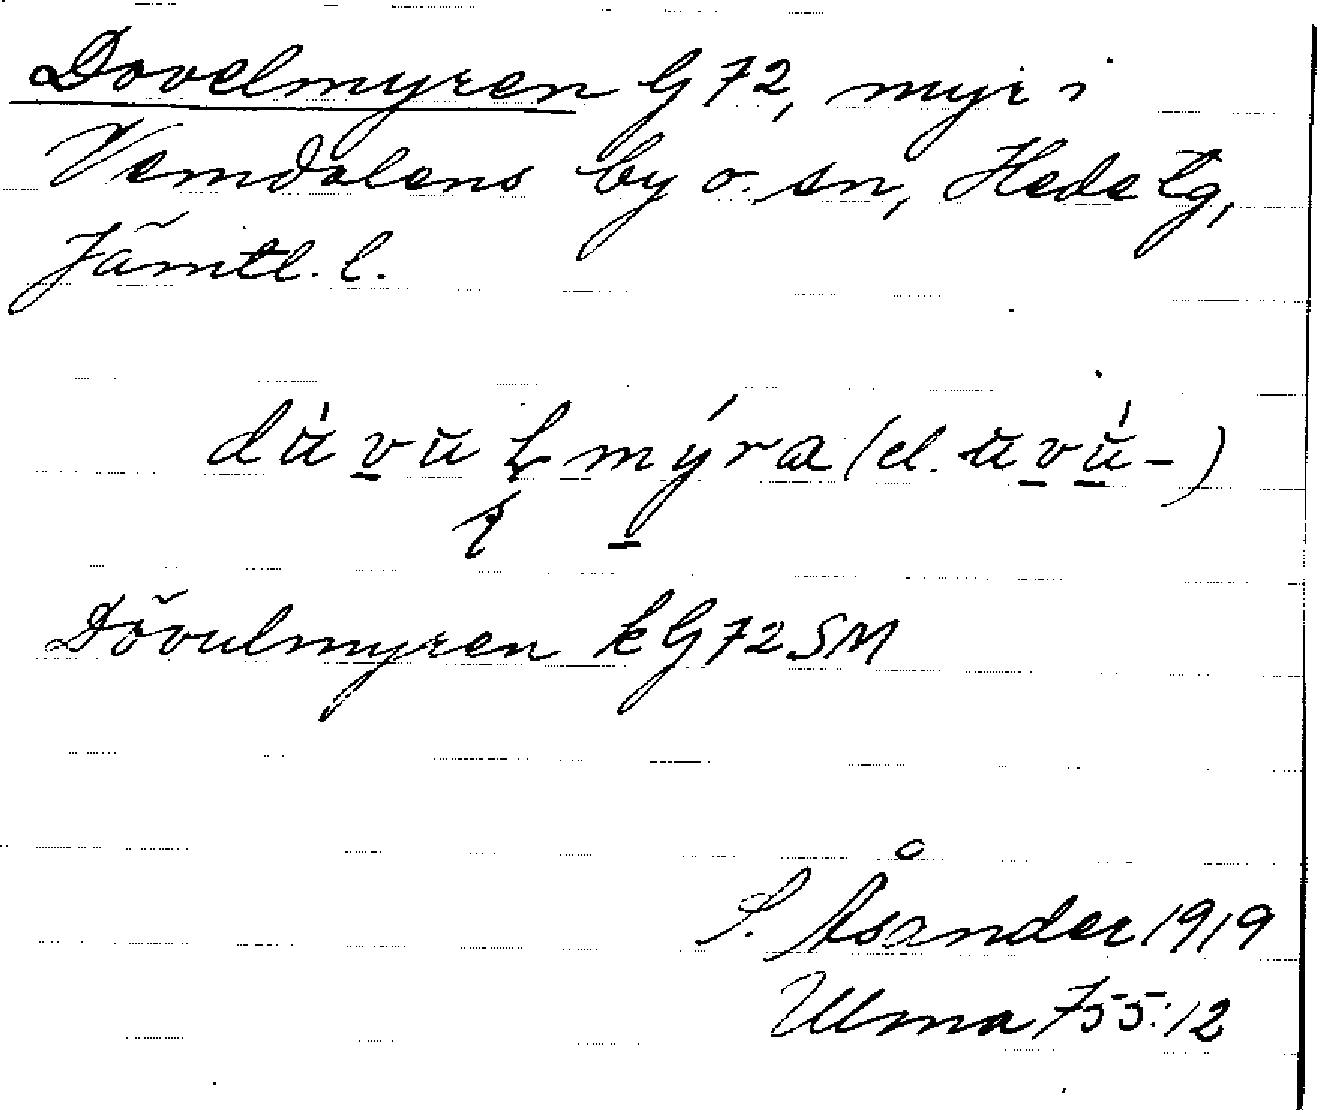 Dovelmyren G72, myr i
Vemdalens by o. sn, Hede tg,
Jämtl. l.
(el.
Dövulmyren k G72 SM
S. Åsander 1919
Ulma 755:12